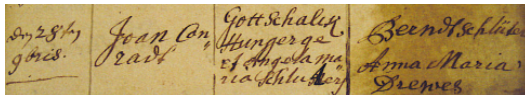 den 28ten
9bris.
Joan Con
radt
Gottschalck
Hungerge
et Angela ma
ria Schluters
Berndt Schluter
Anna Maria
Drewes